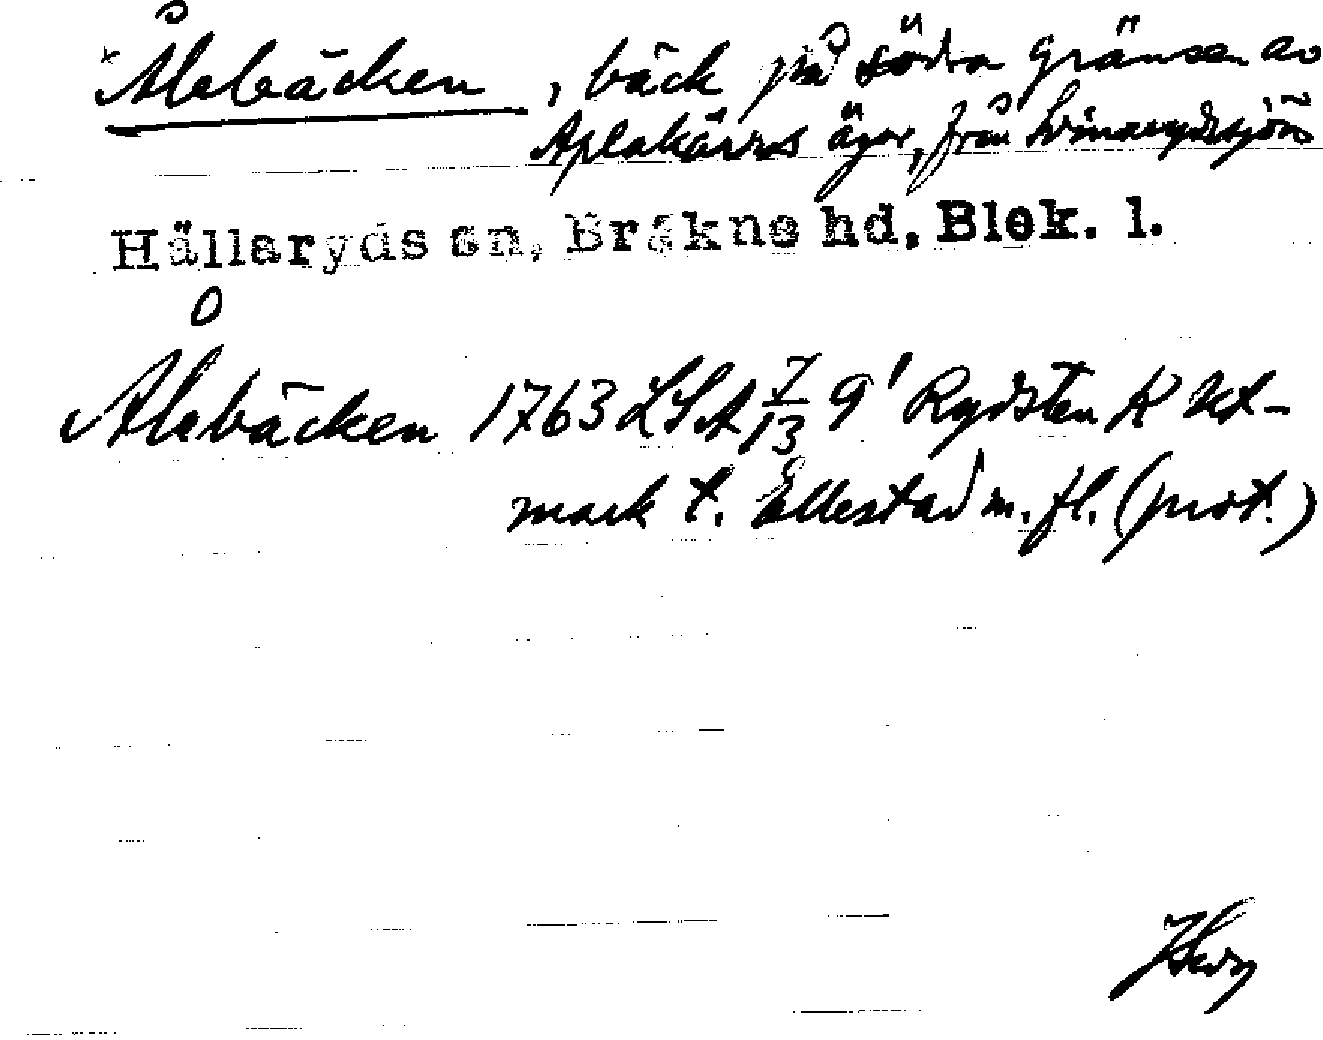 × Ålebäcken, bäck på södra gränsen av
Aplakärrs ägor, från
Hällaryds sn, Bräkne hd, Blek. l.
Ålebäcken 1763 LSA 7/13 9' Rydsten K Ut-
mark t. Ellestad m. fl. (prot.)